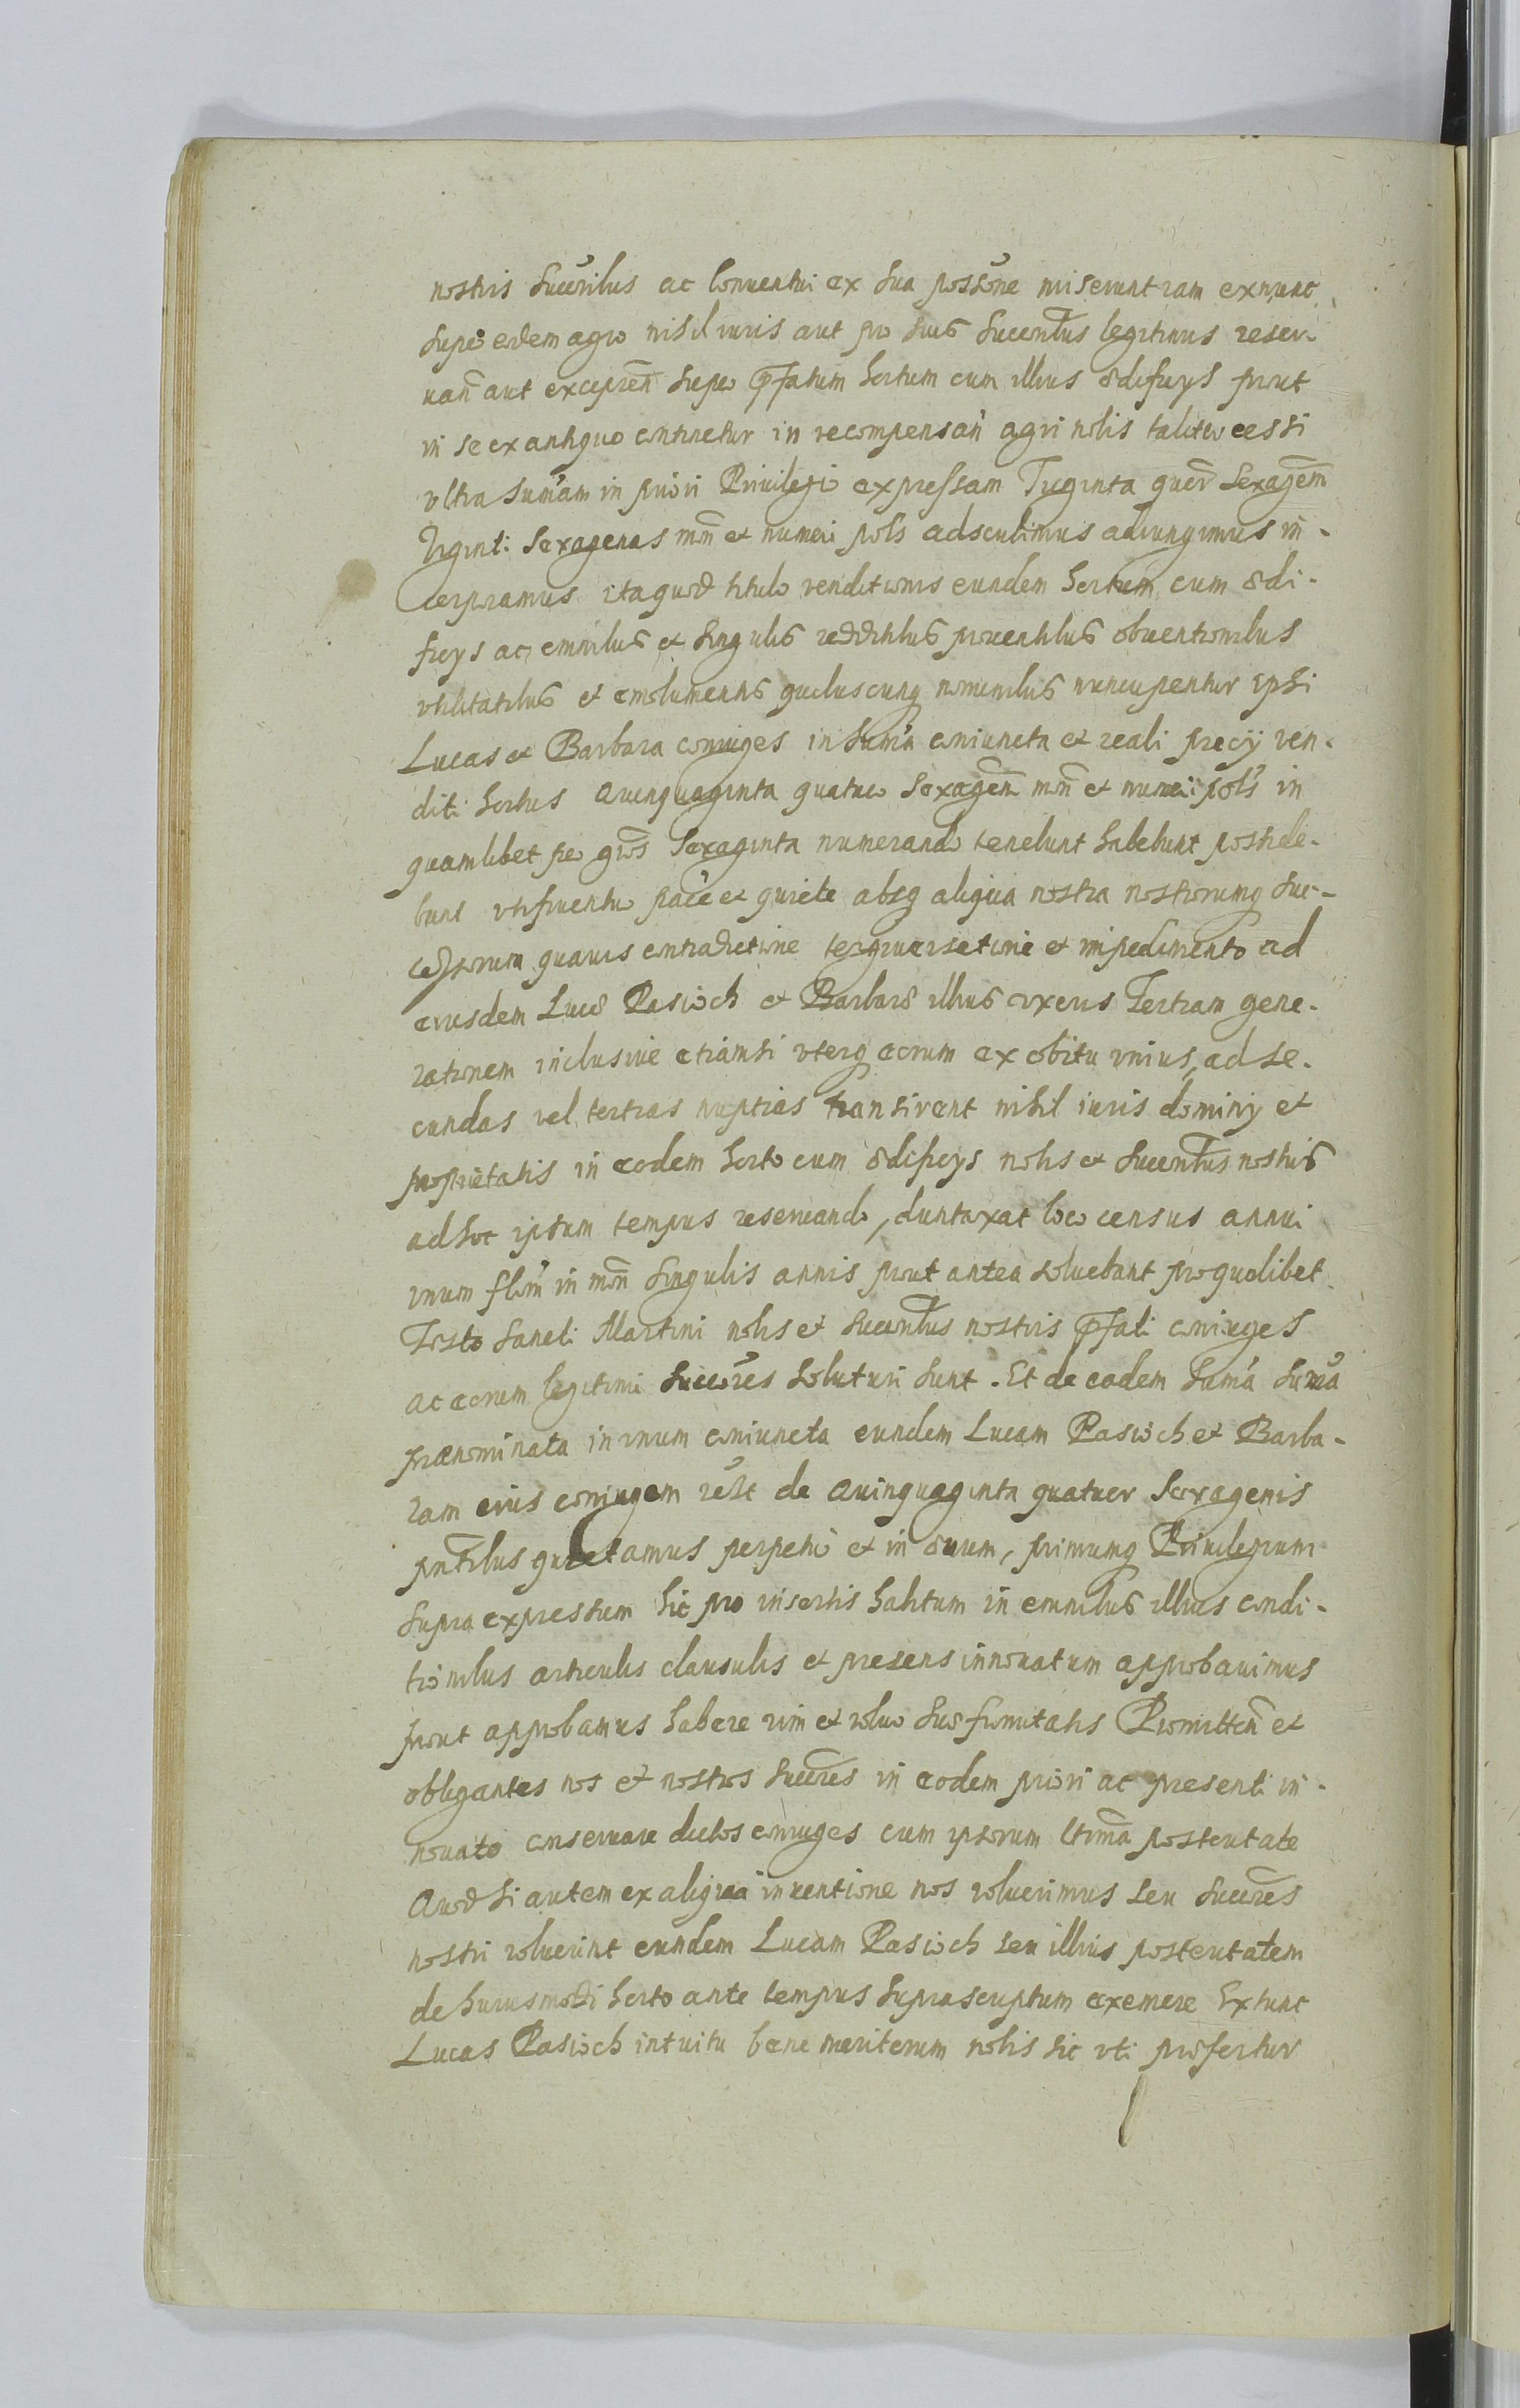 nostris Succ̃ribus ac Conuentui ex sua possõne miserunt iam exnunc
super eodem agro nihil iuris aut pro suis Succ̃ribus legitimis reser-
uañ aut excipieñ super p̃fatum hortum cum illius ędificiys prout
in se ex antiquo continetur in recompensam̃ agri nobis taliter cessi
vltra sum̃am in priori Priuilegio expressam Triginta quer̃ Sexageñ
Viginti Sexagenas moñ et numeri pol̃s adscribimus adiungimus in-
corporamus ita quod titulo venditionis eundem hortum cum ędi-
ficys ac omnibus et singulis redditibus prouentibus obuentionibus
vtilitatibus et emolumentis quibuscunq nominibus nuncupentur ipsi
Lucas et Barbara coniuges in sum̃a coniuncta et reali precy ven-
diti hortus Quinquaginta quatuor Sexageñ moñ et numeri pol̃s in
quamlibet per gros̃ Sexaginta numerando tenebunt habebunt posside-
bunt vtifruentur pace et quiete absq aliqua nostra nostrorumq suc-
cessorum quauis contradictione tergiuersatione et impedimento ad
eiusdem Lucę Pasioch et Barbarę illius vxoris Tertiam gene-
rationem inclusiue etiamsi vterq eorum ex obitu vnius, ad se-
cundas vel tertias nuptias transirent nihil iuris dominy et
proprietatis in eodem horto cum ędificys nobis et Succ̃ribus nostris
ad hoc ipsum tempus reseruando, duntaxat loco census annui
vnum flom̃ in moñ singulis annis prout antea soluebant pro quolibet
Festo Sancti Martini nobis et Succ̃ribus nostris p̃fati coniuges
ac eorum legitimi Succ̃res soluturi sunt. Et de eodem sum̃a supra
prænominata in vnum coniuncta eundem Lucam Pasioch et Barba-
ram eius coniugem de Quinquaginta quatuor Sexagenis
pñtibus quietamus perpetuo et in ęuum, primumq Priuilegium
supra expressum hic pro insertis habitum in omnibus illius condi-
tionibus articulis clausulis et presens innouatum approbauimus
prout approbamus habere vim et robur suę firmitatis Promitteñ et
obligantes nos et nostros Succ̃res in eodem priori ac presenti in-
nouato conseruare dictos coniuges cum ipsorum ltim̃a posteritate
Quod si autem ex aliqua inuentione nos voluerimus seu Succ̃res
nostri voluerint eundem Lucam Pasioch seu illius posteritatem
de huiusmodi horto ante tempus suprascriptum eximere Extunc
Lucas Pasioch intuitu bene meritorum nobis sic vti profertur